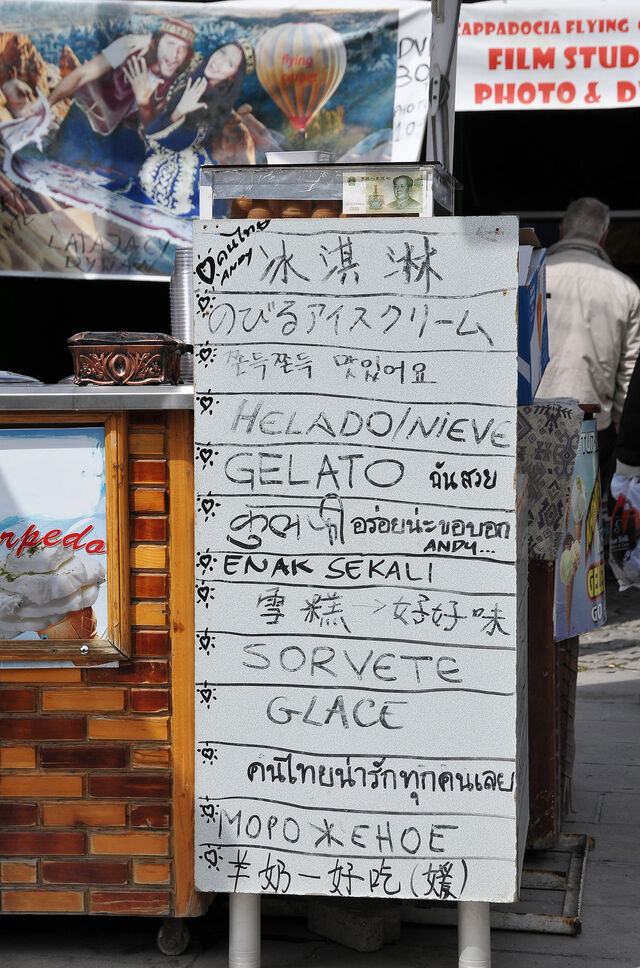 flying
carpet
DV
30
PHOTO
10
CAPPADOCIA FLYING
FILM STUD
PHOTO & D
คนไทย
ANDY
冰淇淋
のびるアイスクリーム
쫄득쫄득 맛있어요
HELADO/NiEVE
GELATO ฉันสวย
อร่อยน่ะขอบอก
ANDY...
ENAK SEKALI
雪糕 > 好好味
SORVETE
GLACE
คนไทยน่ารักทุกคนเลย
МОРОЖЕНОЕ
羊奶一好吃(媛)
rpedo